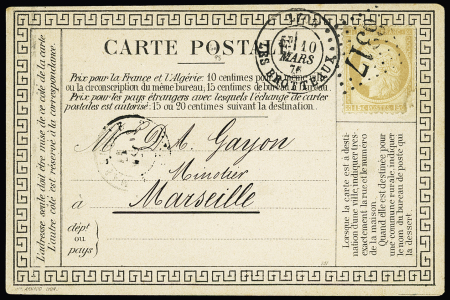 CARTE POSTALE
LYON
10
MARS
76
LES BROTTEAUX
6317
15 POSTES 15
Prix pour la France et l'Algérie: 10 centimes pour le même bureau
ou la circonscription du même bureau; 15 centimes de bureau à bureau.
Prix pour les pays étrangers avec lesquels l'échange de cartes
postales est autorisé: 15 ou 20 centimes suivant la destination.
L'adresse seule doit être mise de ce côté de la carte
L'autre côté est réservé à la correspondance.
M. D. A. Gayon
Minotier
à Marseille
dépt
ou
pays
Lorsque la carte est à desti-
nation d'une ville, indiquer très-
exactement la rue et le numéro
de la maison.
Quand elle est destinée pour
une commune rurale, indiquer
le nom du bureau de poste qui
la dessert.